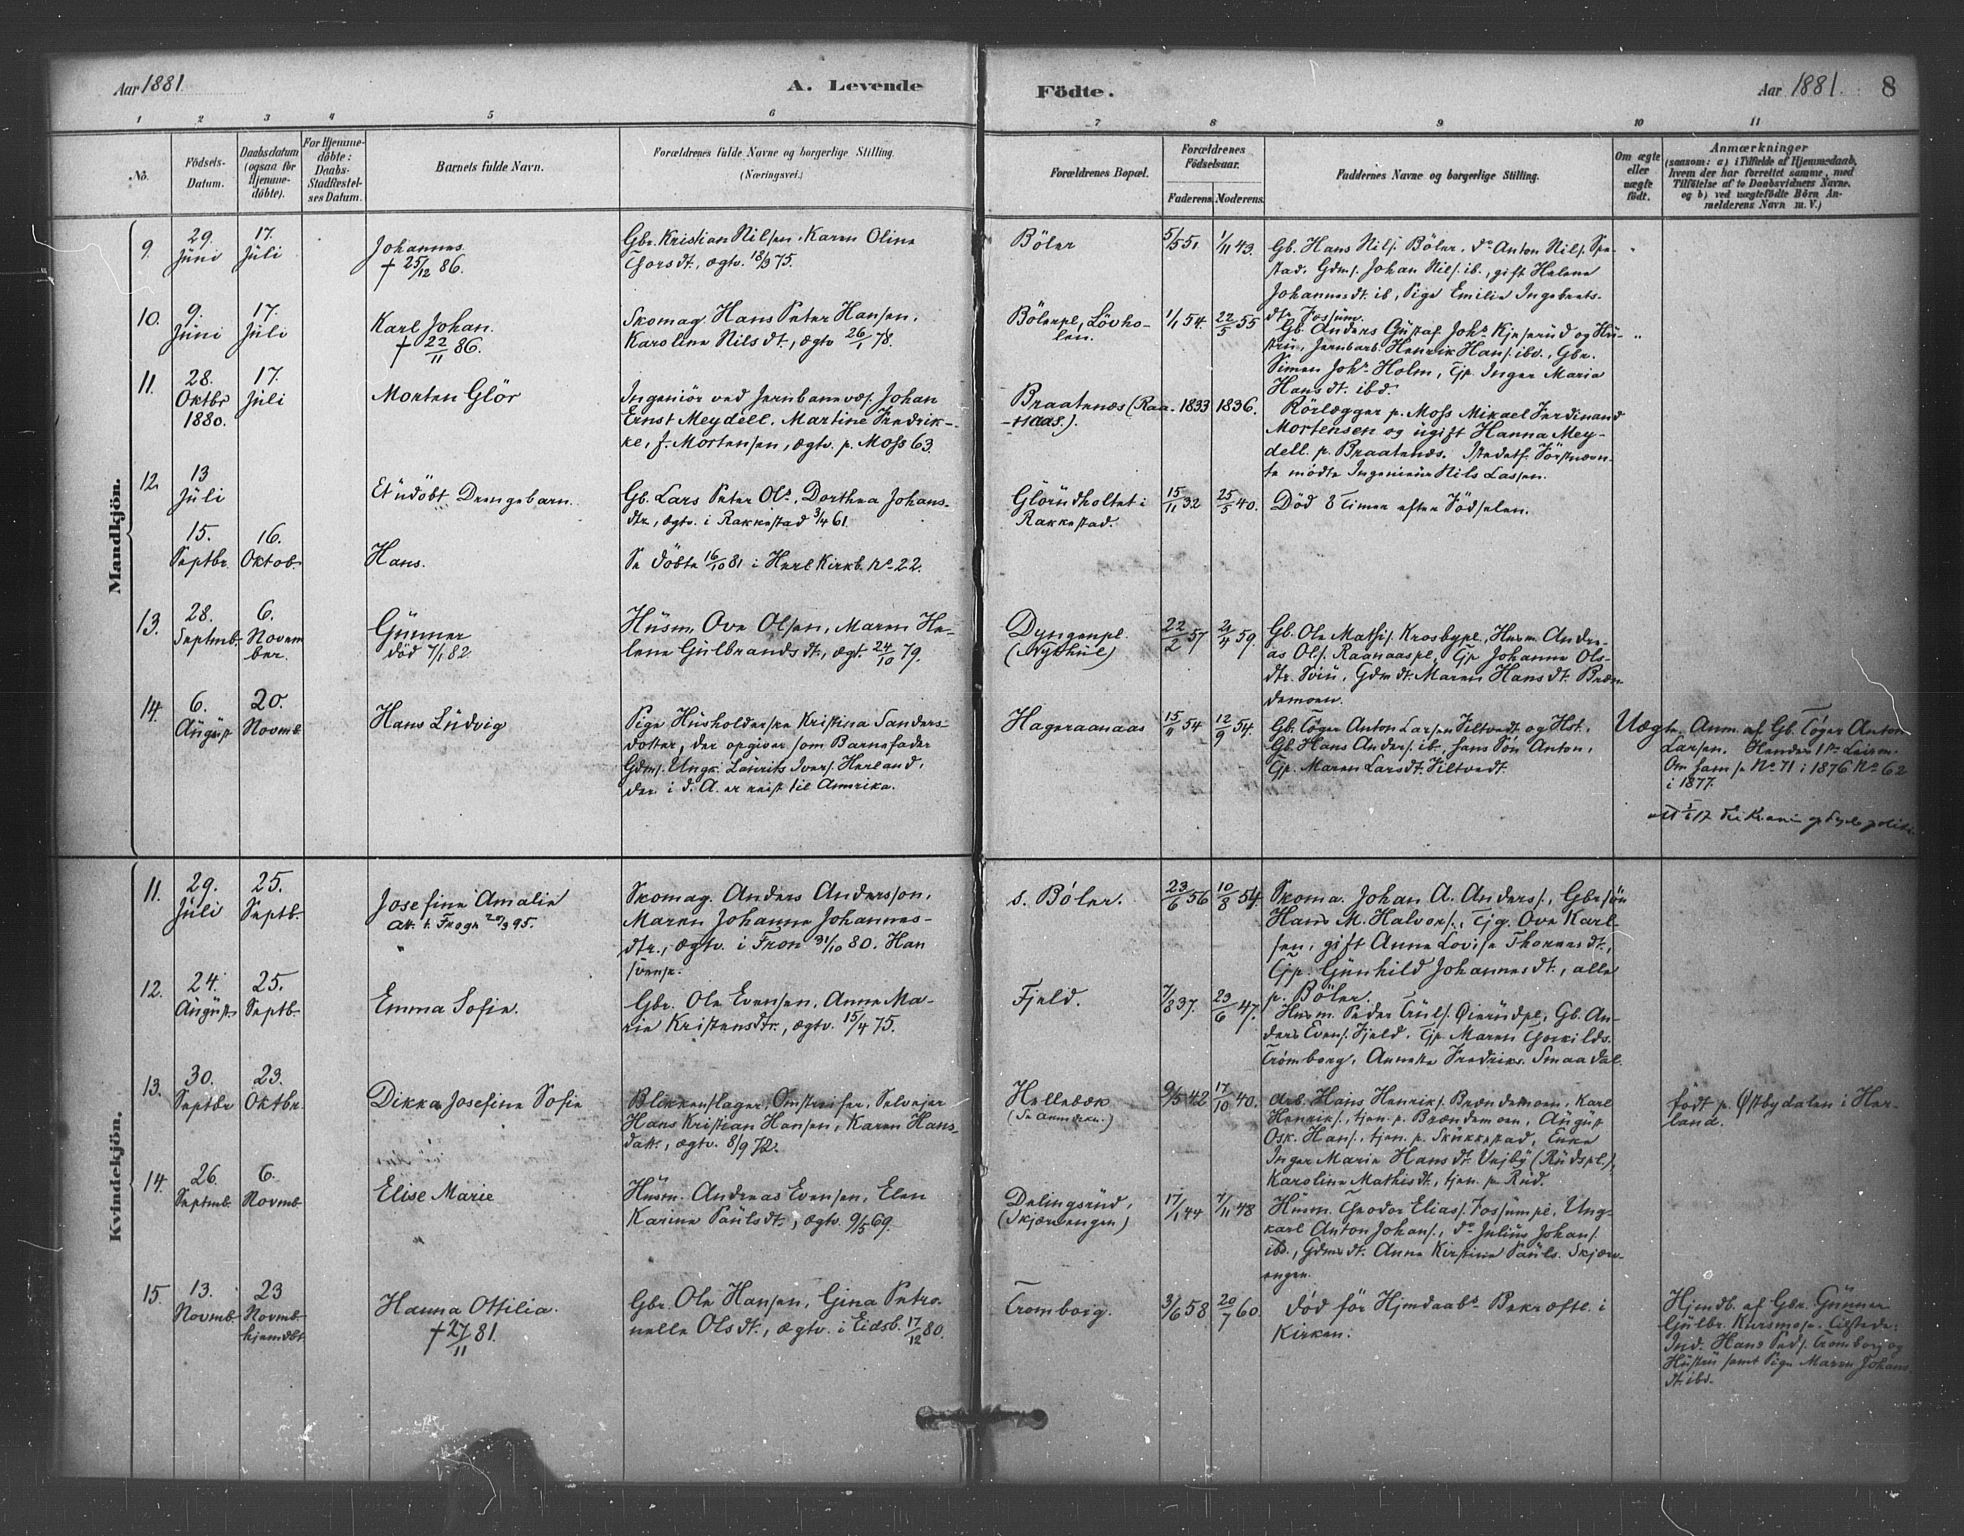 Aar 1881.
A. Levende
Födte.
Aar 1881.
8
1 2 3 4 5 6 7 8 9 10 11
No.
Födsels-
Datum.
Daabsdatum
(ogsaa for
Hjemme-
döbte).
For Hjemme-
döbte:
Daabs-
Stadfæstel-
ses Datum.
Barnets fulde Navn.
Forældrenes fulde Navne og borgerlige Stilling.
(Næringsvei.)
Forældrenes Bopæl.
Forældrenes
Födselsaar.
Faderens. Moderens.
Faddernes Navne og borgerlige Stilling.
Om ægte
eller
uægte
födt.
Anmærkninger
(saasom: a) i Tilfælde af Hjemmedaab,
hvem der har forrettet samme, med
Tilföielse af to Daabsvidners Navne,
og b) ved uægtefödte Börn An-
melderens Navn m. V.)
Mandkjön.
9.
29.
Juni
17.
Juli
Johannes
† 25/12 86.
Gbr. Kristian Nilsen. Karen Oline
Torsdt, ægtv. 18/9 75.
Böler
5/5 51
1/11 43.
Gb. Hans Nils. Böler. do Anton Nils. Spe-
stad. Gdms. Johan Nils. ib., gift Helene
Johannesdt ib, Pige Emilie Ingebrets-
dtr. Fossum.
10.
9.
Juni
17.
Juli
Karl Johan.
† 22/11 86.
Skomag. Hans Peter Hansen.
Karoline Nilsdt., ægtv 26/1 78.
Bölerpl. Lövho-
len.
1/1 54.
22/5 55
Gb. Anders Gustaf Johs. Kjeserud og Hu-
stru, Jernbarb. Henrik Hans. ibd., Gbr.
Simen Johs. Holm, Tjp. Inger Maria
Hansdt. ibd.
11.
28.
Oktbr
1880.
17.
Juli
Morten Glör
Ingeniör ved Jernbanevæs. Johan
Ernst Meydell. Martine Fredrik-
ke, f. Mortensen, ægtv. p. Moss 63.
Braatenæs (Raa-
naas).
1833
1836.
Rörlægger p. Moss Mikael Ferdinand
Mortensen og ugift Hanna Mey-
dell p. Braatenæs. Istedetf. Förstnævn-
te mödte Ingeniör Nils Lassen.
12
13
Juli
Et udöbt Drengebarn.
Gb. Lars Peter Ols. Dorthea Johans-
dtr., ægtv. i Rakkestad 3/4 61.
Glorudholtet i
Rakkestad.
15/11 32
25/5 40.
Död 8 Timer efter Födselen.
15.
Septbr.
16.
Oktob.
Hans.
Se döbte 16/10 81 i Herl. Kirkb. No 22.
13.
28.
Septmb.
6.
Novem
ber.
Gunner
död 7/1 82.
Husm. Ove Olsen, Maren He-
lene Gulbrandsdt., ægt. 24/10 79.
Dyngenpl.
(Nykhul)
22/2 57
2/4 59.
Gb. Ole Mathis. Krosbypl., Husm. Andre-
as Ols. Raanaaspl. Tjp Johanne Ols-
dtr. Sviu, Gdmdt. Maren Hansdt. Bræn-
demoen.
14.
6.
August
20.
Novmb.
Hans Ludvig
Pige Husholderske Kristina Sanders-
datter, der opgiver som Barnefader
Gdms. Ungk. Laurits Ivers. Herland,
der i d. A. er reist til Amerika.
Hageraanaas
15/11 54
12/9 54.
Gb. Töger Anton Larsen Tiltvedt og Hst.
Gb. Hans Anders. ib., hans Sön Anton,
Tjp. Maren Larsdt. Tiltvedt.
Uægte.
Anm. af Gb. Töger Anton
Larsen. Hendes 1ste Leierm.
Om ham se No 71 i 1876 No 62
i 1877.
Kvindekjön.
11.
29.
Juli
25.
Septb.
Josefine Amalie
Att. t. Frogn 20/3 95.
Skomag. Anders Andersson.
Maren Johanne Johannes-
dtr., ægtv. i Fron 31/10 80. Han
svensk.
s. Böler.
23/6 56
10/8 54.
Skoma. Johan A. Anders., Gbrsön
Hans M. Halvors., Tjg. Ove Karl-
sen, gift Anne Lovise Thoresdt.,
Tjp. Gunhild Johannesdt., alle
p. Böler.
12.
24.
August
25.
Septb.
Emma Sofie.
Gbr. Ole Evensen, Anne Ma-
rie Kristensdtr., ægtv. 15/4 75.
Fjeld.
7/8 37.
23/6 47.
Husm. Peder Truls. Öierudpl., Gb. An-
ders Evens. Fjeld. Tjp. Maren Torkilds.
Trömborg, Anneke Fredriks. Smaadal.
13.
30.
Septbr
23.
Oktbr.
Dikka Josefine Sofie
Blikkenslager, Omstreifer, Selveier
Hans Kristian Hansen, Karen Hans-
datt., ægtv. 8/9 72.
Hellebæk
(Se Anmærkn.)
9/5 42
17/10 40.
Arb. Hans Henriks. Brændemoen, Karl
Henriks., tjen. p. Brændemoen, August
Osk. Hans., tjen. p. Skukkestad, Enke
Inger Marie Hansdt. Vejby (Rudspl.),
Karoline Mathisdt., tjen. p. Rud.
födt p. Östbydalen i Her-
land.
14.
26.
Septmb.
6.
Novmb.
Elise Marie
Husm. Andreas Evensen, Elen
Karine Paulsdt., ægtv. 9/5 69.
Delingsrud,
(Skjærengen)
17/1 44
7/11 48
Husm. Theodor Elias. Fossumpl., Ung-
karl Anton Johans., do Julius Johans.
ibd., Gdmsdt. Anne Kirstine Pauls. Skjær-
engen.
15.
13.
Novmb.
23
Novmb.
hjemdbt
Hanna Ottilia.
† 27/11 81.
Gbr. Ole Hansen, Gina Petro-
nelle Olsdt., ægtv. i Eidsb. 17/12 80.
Tromborg.
3/6 58
20/7 60.
död för Hjmdaabs Bekræfte. i
Kirken.
Hjmdb. af Gbr. Gunner
Gulbr. Kursmose. Tilstede:
Ind. Hans Peds. Tromborg og
Hustru samt Pige Maren Johans
dt. ibd.